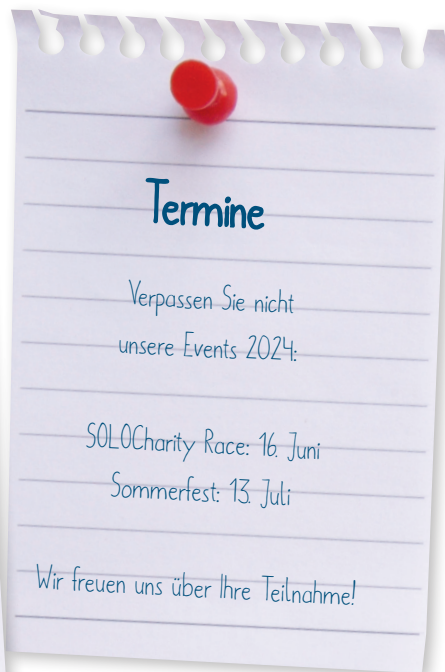 Termine
Verpassen Sie nicht
unsere Events 2024:
SOLOCharity Race: 16. Juni
Sommerfest: 13. Juli
Wir freuen uns über Ihre Teilnahme!